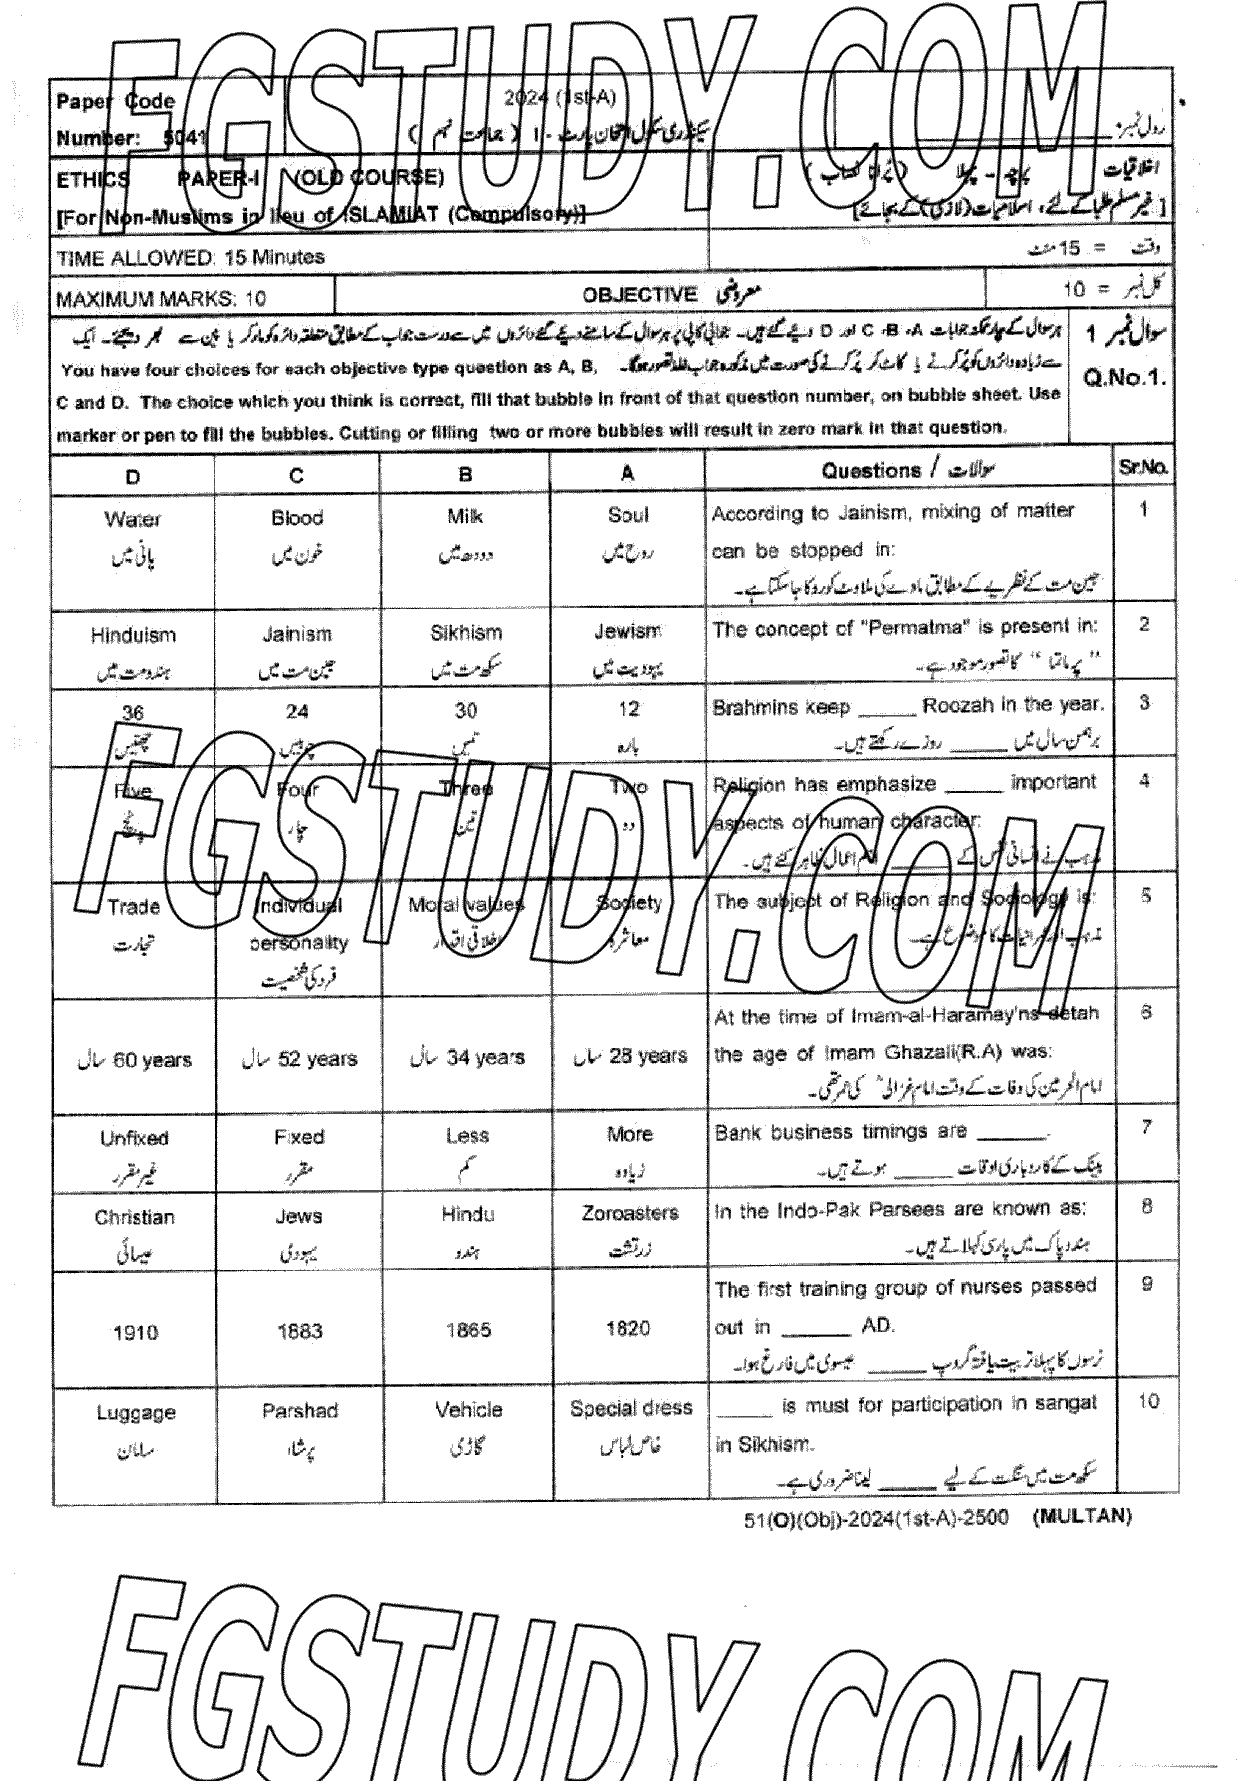 FGSTUDY.COM
Paper Code
Number: 5041
2024 (1st-A)
سیکنڈری سکول امتحان پارٹ - I ( جماعت نہم )
رول نمبر: ________
ETHICS PAPER-I (OLD COURSE)
[For Non-Muslims in lieu of ISLAMIAT (Compulsory)]
اخلاقیات پرچہ - پہلا ( پُرانا نصاب )
[ غیر مسلم طلبا کے لئے، اسلامیات (لازمی) کے بجائے]
TIME ALLOWED: 15 Minutes
وقت = 15 منٹ
MAXIMUM MARKS: 10
OBJECTIVE معروضی
کل نمبر = 10
سوال نمبر 1
Q.No.1.
ہر سوال کے چار ممکنہ جوابات A، B، C اور D دیئے گئے ہیں۔ جوابی کاپی پر ہر سوال کے سامنے دیئے گئے دائروں میں سے درست جواب کے مطابق متعلقہ دائرہ کو مارکر یا پین سے بھر دیجئے۔ ایک
سے زیادہ دائروں کو پُر کرنے یا کاٹ کر پُر کرنے کی صورت میں مذکورہ جواب غلط تصور ہوگا۔ You have four choices for each objective type question as A, B,
C and D. The choice which you think is correct, fill that bubble in front of that question number, on bubble sheet. Use
marker or pen to fill the bubbles. Cutting or filling two or more bubbles will result in zero mark in that question.
D C B A Questions / سوالات Sr.No.
Water Blood Milk Soul According to Jainism, mixing of matter 1
can be stopped in:
پانی میں خون میں دودھ میں روح میں
جین مت کے نظریے کے مطابق مادے کی ملاوٹ کو روکا جا سکتا ہے۔
Hinduism Jainism Sikhism Jewism The concept of "Permatma" is present in: 2
ہندومت میں جین مت میں سکھ مت میں یہودیت میں " پرماتما " کا تصور موجود ہے۔
36 24 30 12 Brahmins keep _____ Roozah in the year. 3
چھتیس چوبیس تیس بارہ برہمن سال میں _____ روزے رکھتے ہیں۔
Five Four Three Two Religion has emphasize _____ important 4
aspects of human character:
پانچ چار تین دو
مذہب نے انسانی نفس کے _____ اہم اعمال ظاہر کئے ہیں۔
Trade Individual Moral values Society The subject of Religion and Sociology is: 5
personality
تجارت فرد کی شخصیت اخلاقی اقدار معاشرہ مذہب اور عمرانیات کا موضوع ہے۔
At the time of Imam-al-Haramay'ns detah 6
60 years سال 52 years سال 34 years سال 28 years سال the age of Imam Ghazali(R.A) was:
امام الحرمین کی وفات کے وقت امام غزالیؒ کی عمر تھی۔
Unfixed Fixed Less More Bank business timings are ______. 7
غیر مقرر مقرر کم زیادہ بینک کے کاروباری اوقات _____ ہوتے ہیں۔
Christian Jews Hindu Zoroasters In the Indo-Pak Parsees are known as: 8
عیسائی یہودی ہندو زرتشت ہندو پاک میں پارسی کہلاتے ہیں۔
The first training group of nurses passed 9
1910 1883 1865 1820 out in ______ AD.
نرسوں کا پہلا تربیت یافتہ گروپ _____ عیسوی میں فارغ ہوا۔
Luggage Parshad Vehicle Special dress _____ is must for participation in sangat 10
in Sikhism.
سامان پرشاد گاڑی خاص لباس
سکھ مت میں سنگت کے لیے _____ لینا ضروری ہے۔
51(O)(Obj)-2024(1st-A)-2500 (MULTAN)
FGSTUDY.COM
FGSTUDY.COM